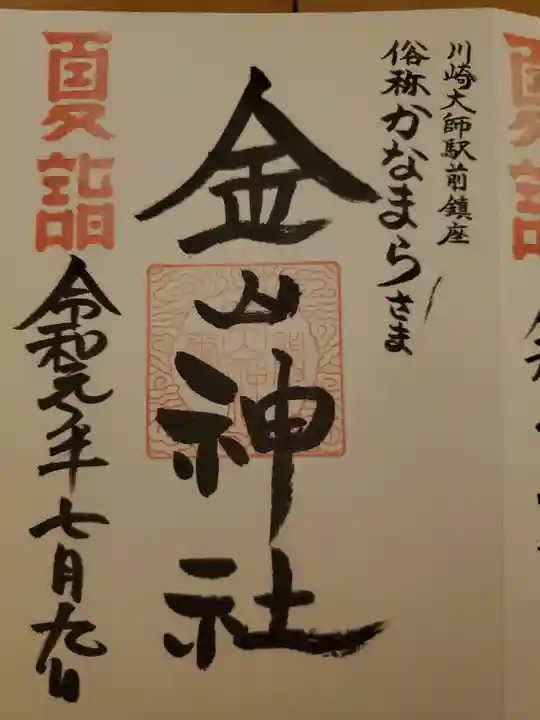 川崎大師駅前鎮座
俗称かなまらさま
金山神社
夏詣
令和元年七月九日
夏詣